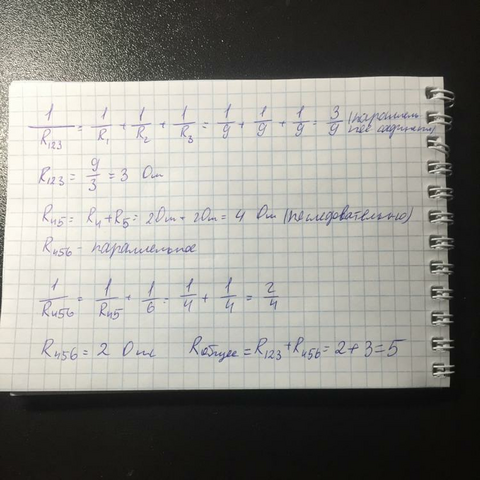 1/R123 = 1/R1 + 1/R2 + 1/R3 = 1/9 + 1/9 + 1/9 = 3/9 (параллел
R123 = 9/3 = 3 Ом
R45 = R4 + R5 = 2Ом + 2Ом = 4 Ом (последовательно)
R456 - параллельное
1/R456 = 1/R45 + 1/6 = 1/4 + 1/4 = 2/4
R456 = 2 Ом Rобщее = R123 + R456 = 2 + 3 = 5